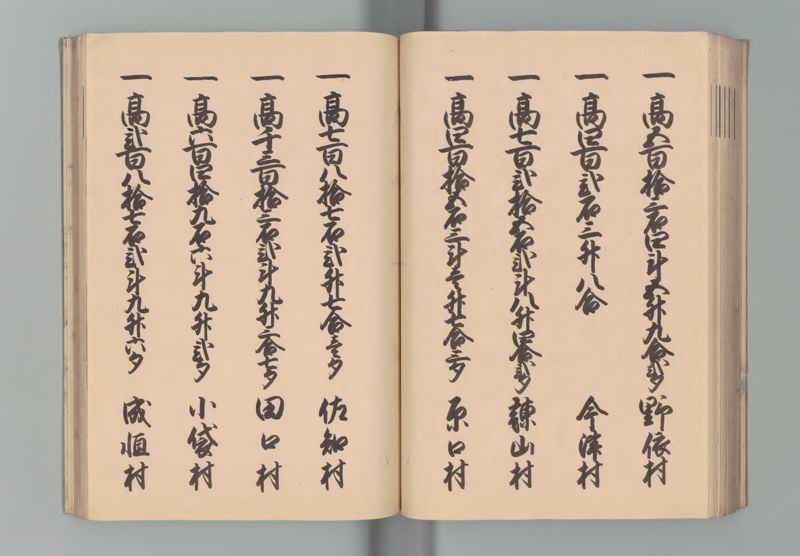 一高五百拾二石四斗五升九合弐夕 野依村
一高四百弐石三升八合 今津村
一高七百弐拾五石弐斗八升四合弐夕 諫山村
一高四百拾五石三斗壱升七合三夕 原口村
一高七百八拾七石弐升七合壱夕 佐知村
一高千三百拾二石弐斗九升二合七夕 田口村
一高六百四拾九石六斗九升弐夕 小袋村
一高弐百八拾七石弐斗九升六夕 成恒村